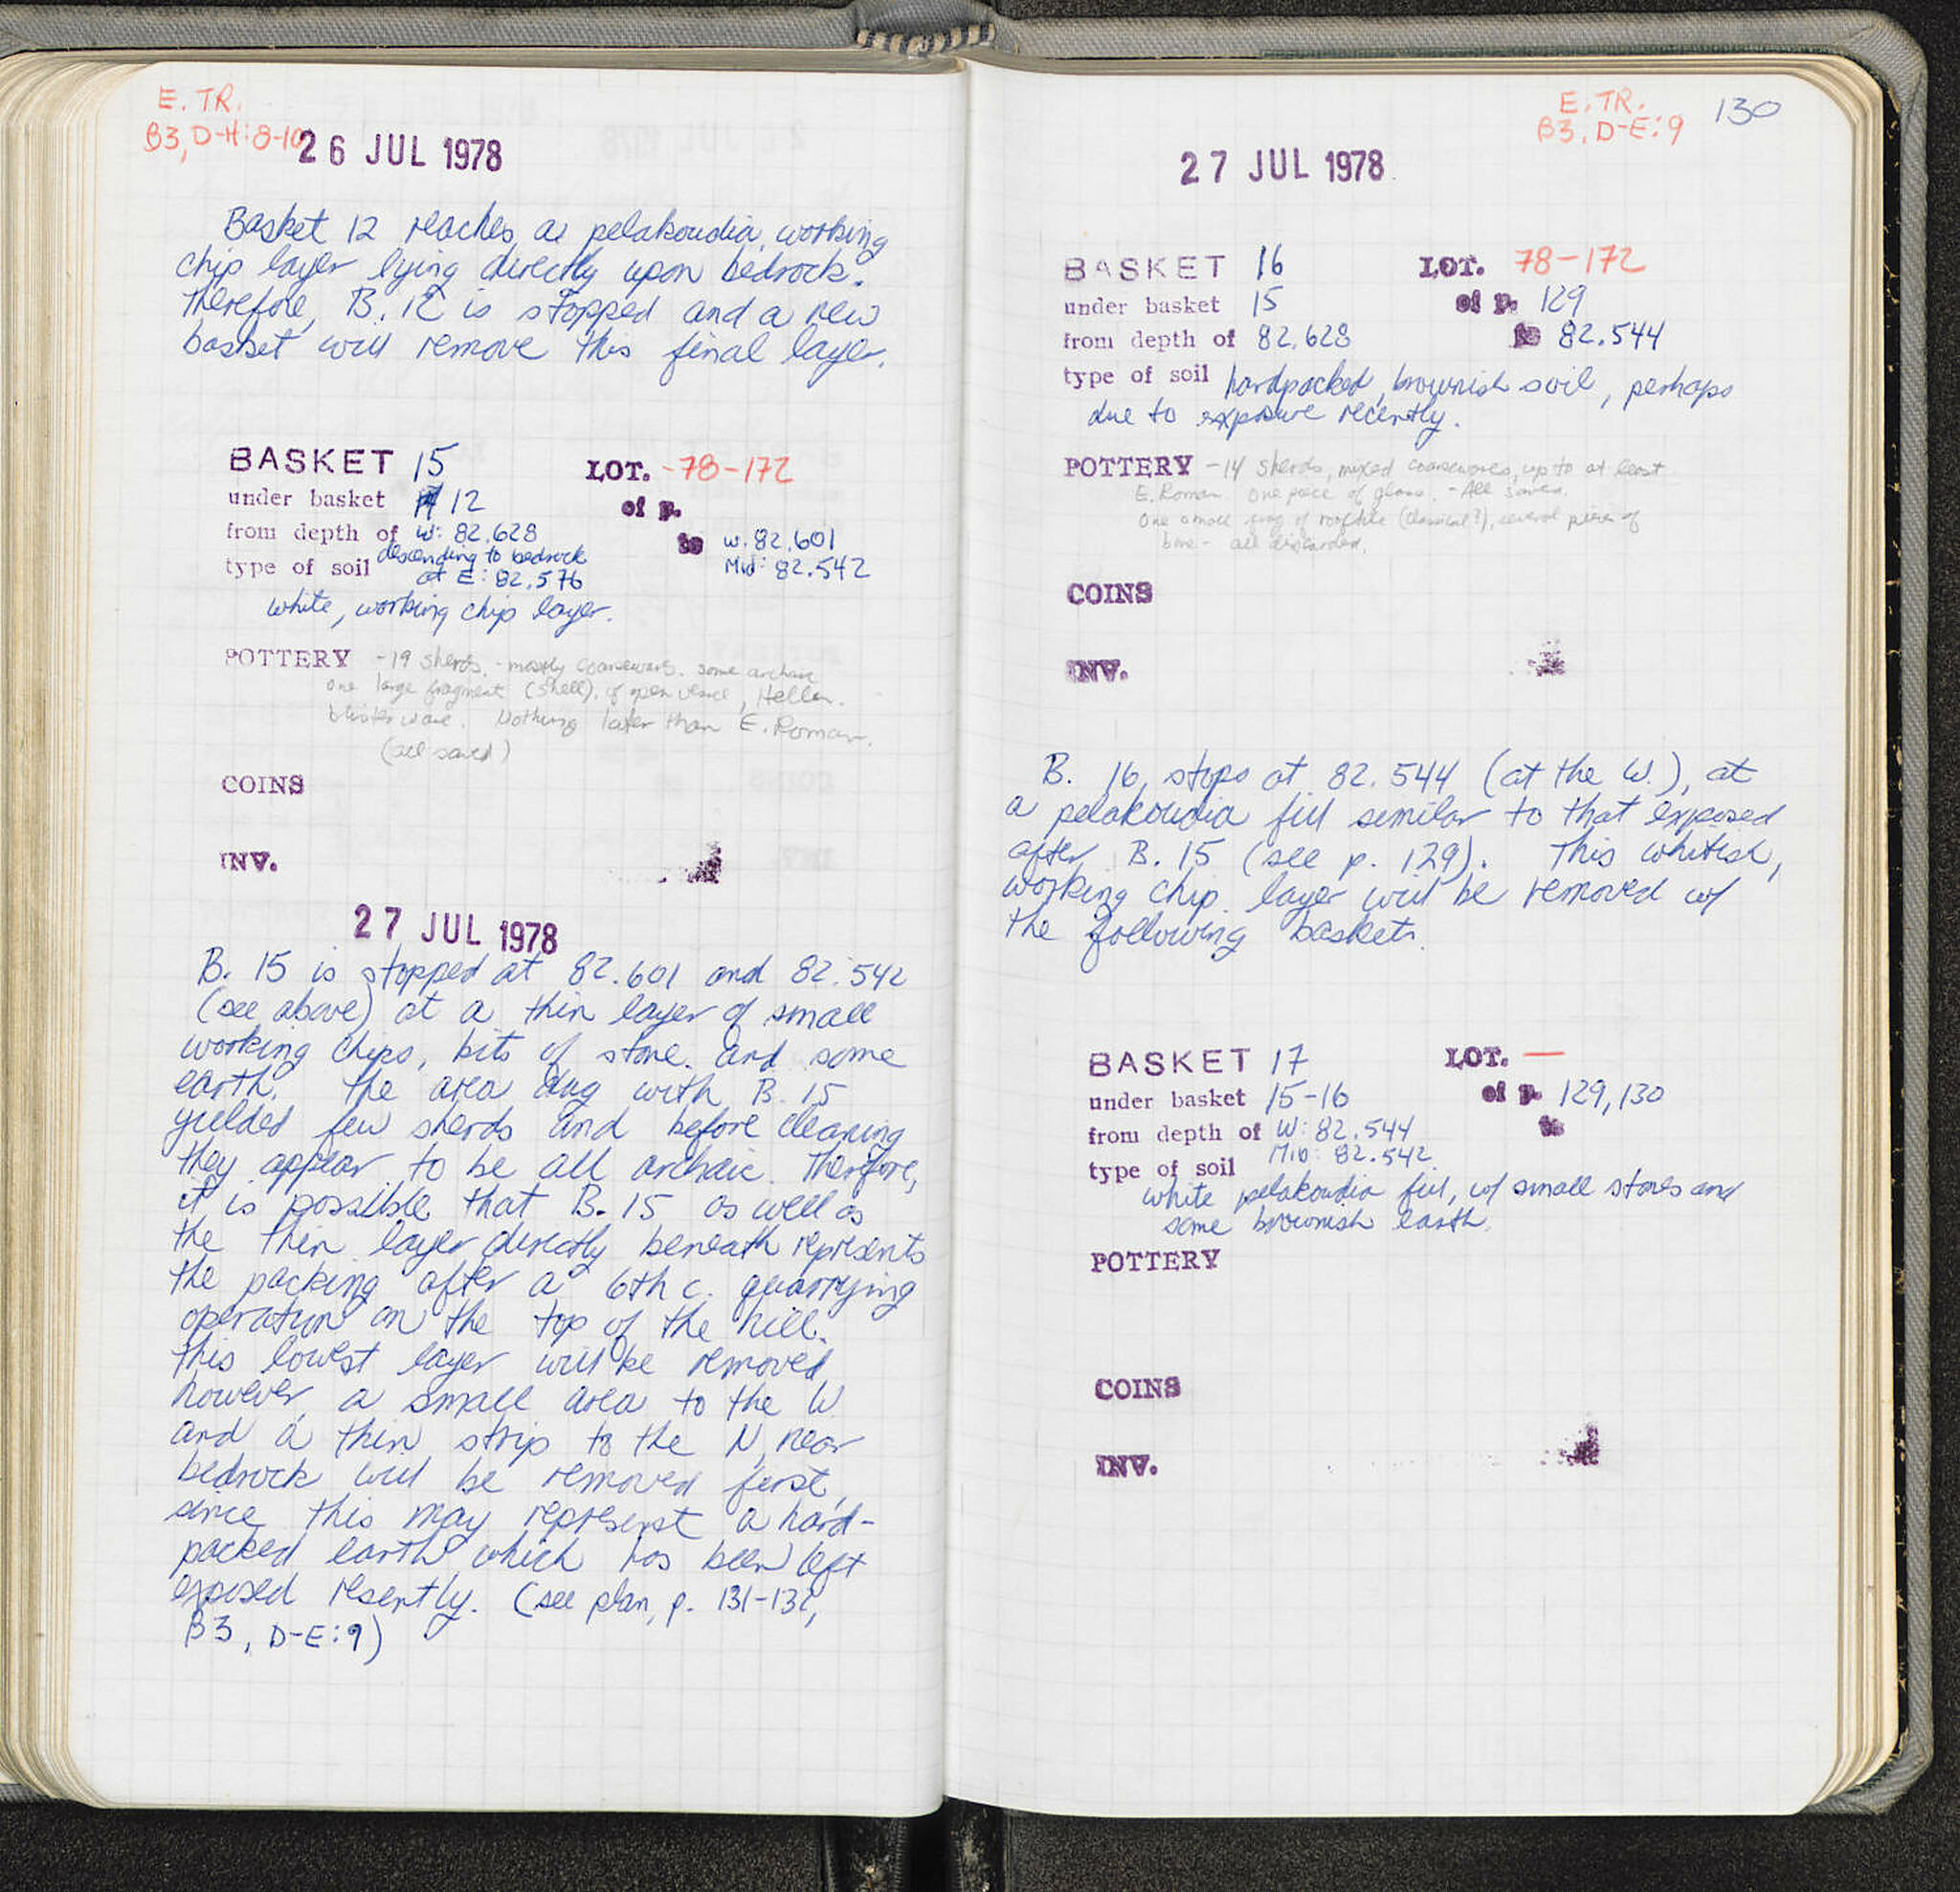 E. TR.
B3, D-H:8-10
26 JUL 1978
Basket 12 reaches a pelakoudia, working
chip layer lying directly upon bedrock.
Therefore, B. 12 is stopped and a new
basket will remove this final layer.
BASKET 15 LOT. -78-172
under basket 12 of p.
from depth of W: 82.628 to W. 82.601
descending to bedrock Mid: 82.542
type of soil at E: 82.576
white, working chip layer.
POTTERY -19 sherds. - mostly coarseware. some archaic
one large fragment (shell), of open vessel, Hellen.
blisterware. Nothing later than E. Roman.
(all saved)
COINS
INV.
27 JUL 1978
B. 15 is stopped at 82.601 and 82.542
(see above) at a thin layer of small
working chips, bits of stone and some
earth. The area dug with B. 15
yielded few sherds and before cleaning
they appear to be all archaic. Therefore,
it is possible that B. 15 as well as
the thin layer directly beneath represents
the packing after a 6th c. quarrying
operation on the top of the hill.
This lowest layer will be removed,
however, a small area to the W
and a thin strip to the N, near
bedrock will be removed first,
since this may represent a hard-
packed earth which has been left
exposed resently. (see plan, p. 131-132,
B3, D-E:9)
E. TR.
B3, D-E:9
130
27 JUL 1978
BASKET 16 LOT. 78-172
under basket 15 of p. 129
from depth of 82.628 to 82.544
type of soil hardpacked, brownish soil, perhaps
due to exposure recently.
POTTERY -14 sherds, mixed coarsewares, up to at least
E. Roman. One piece of glass. - All saved.
One small frag of rooftile (Classical?), several pieces of
bone - all discarded.
COINS
INV.
B. 16 stops at 82.544 (at the W.), at
a pelakoudia fill similar to that exposed
after B. 15 (see p. 129). This whitish,
working chip layer will be removed w/
the following baskets.
BASKET 17 LOT. —
under basket 15-16 of p. 129, 130
from depth of W: 82.544 to
Mid: 82.542
type of soil
white pelakoudia fill, w/ small stones and
some brownish earth.
POTTERY
COINS
INV.